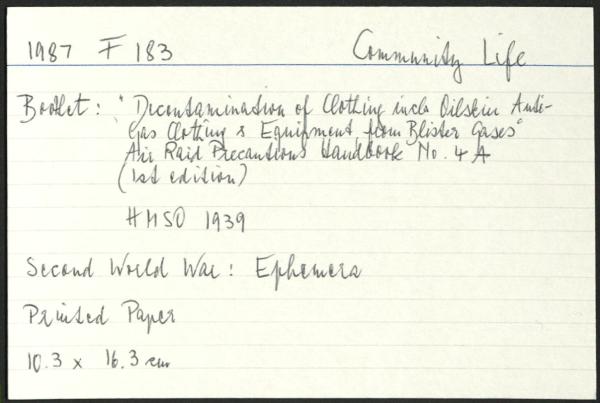 1987 F 183 Community Life
Booklet: "Decontamination of Clothing incl. Oilskin Anti-
Gas Clothing & Equipment from Blister Gases"
Air Raid Precautions Handbook No. 4A
(1st edition)
HMSO 1939
Second World War: Ephemera
Printed Paper
10.3 x 16.3 cm